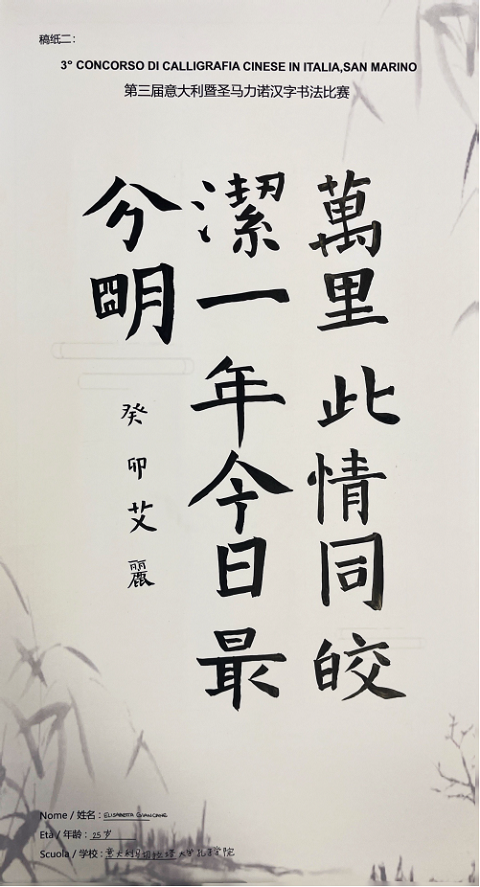 稿纸二：
3° CONCORSO DI CALLIGRAFIA CINESE IN ITALIA,SAN MARINO
第三届意大利暨圣马力诺汉字书法比赛
萬里此情同皎
潔一年今日最
分明
癸卯艾麗
Nome / 姓名：ELISABETTA GIANCANE
Età / 年龄：25岁
Scuola / 学校：意大利大学孔子学院